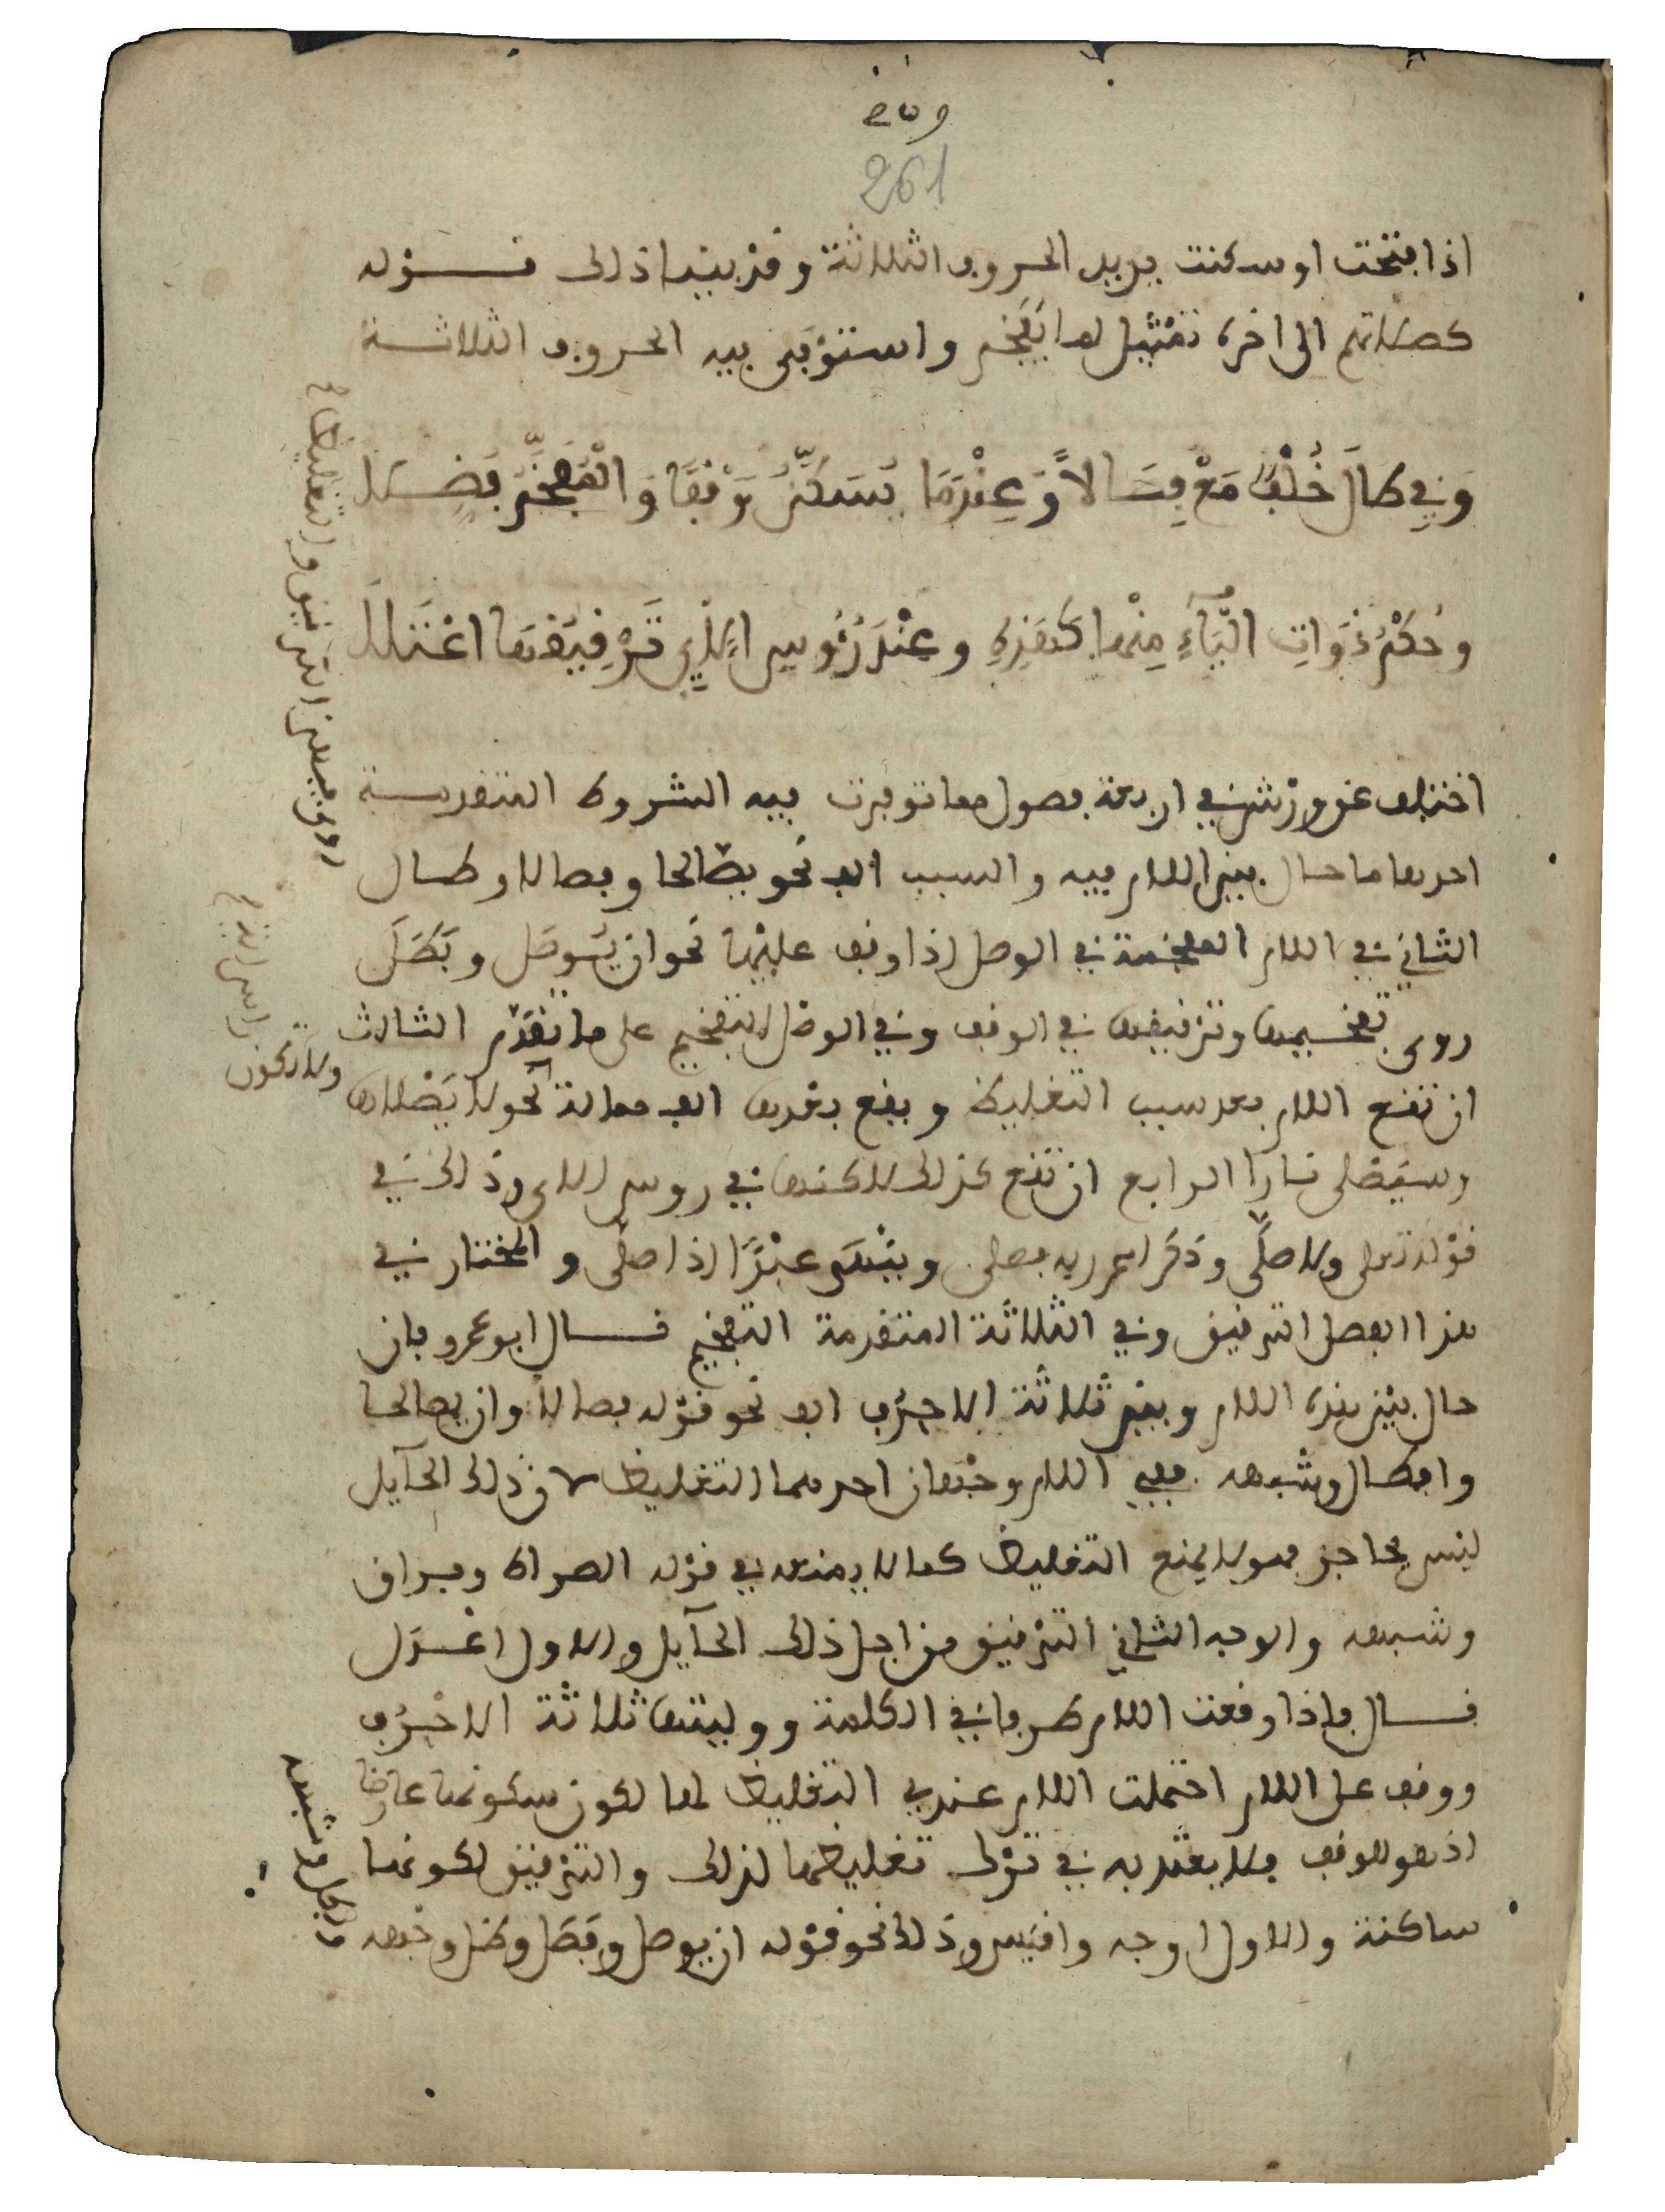 261
اذا فتحت او سكنت يريد الحروف الثلاثة وقد بينا ذلك قوله
كصلاتهم الى اخره تمثيل لما يفخم واستوفى فيه الحروف الثلاثة
وَفِي طَالَ خُلْفٌ مَعْ فِصَالاً وَعِنْدَمَا يُسَكَّنُ وَقْفًا وَالْمُفَخَّمُ فُضِّلَا
وَحُكْمُ ذَوَاتِ الْيَآءِ مِنْهَا كَهَذِهِ وَعِنْدَ رُءُوسِ الآيِ تَرْقِيقُهَا اعْتَلَا
اختلف عن ورش في اربعة فصول مما توفرت فيه الشروط المتقدمة
احدها ما حال بين اللام فيه والسبب الف نحو يصّالحا وفصالا وطال
الثاني في اللام المفخمة في الوصل اذا وقف عليها نحو ان يوصل وبطل
روى تفخيمها وترقيقها في الوقف وفي الوصل التفخيم على ما تقدم الثالث
ان تقع اللام بعد سبب التغليظ ويقع بعدها الف ممالة نحو لا يصلاها
وسيصلى نارا الرابع ان تقع كذلك لاكنها في روس الاى وذلك في
قوله تعلى ولا صلّى وذكر اسم ربه فصلى وينهى عبدًا اذا صلى والمختار في
هذا الفصل الترقيق وفي الثلاثة المتقدمة التفخيم قال ابو عمرو فان
حال بين هذه اللام وبين ثلاثة الاحرف الف نحو قوله فصالا وان يصالحا
وافطال وشبهه ففي اللام وجهان احدهما التغليظ لان ذلك الحآيل
ليس بحاجز فهو لا يمنع التغليظ كما لا يمنعه في قوله الصراط وفراق
وشبهه والوجه الثاني الترقيق من اجل ذلك الحآيل والاول اعدل
قال فاذا وقعت اللام طرفا في الكلمة ووليتها ثلاثة الاحرف
ووقف على اللام احتملت اللام عندي التغليظ لما لكون سكونها عارضا
اذ هو للوقف فلا يعتد به في ترك تغليظها لذلك والترقيق لكونها
ساكنة والاول اوجه واقيس وذلك نحو قوله ان يوصل وفصَل وظل وشبهه
روى فيهن الترقيق والتغليظ
ولاكن
راس اية
وبطل وشبهه